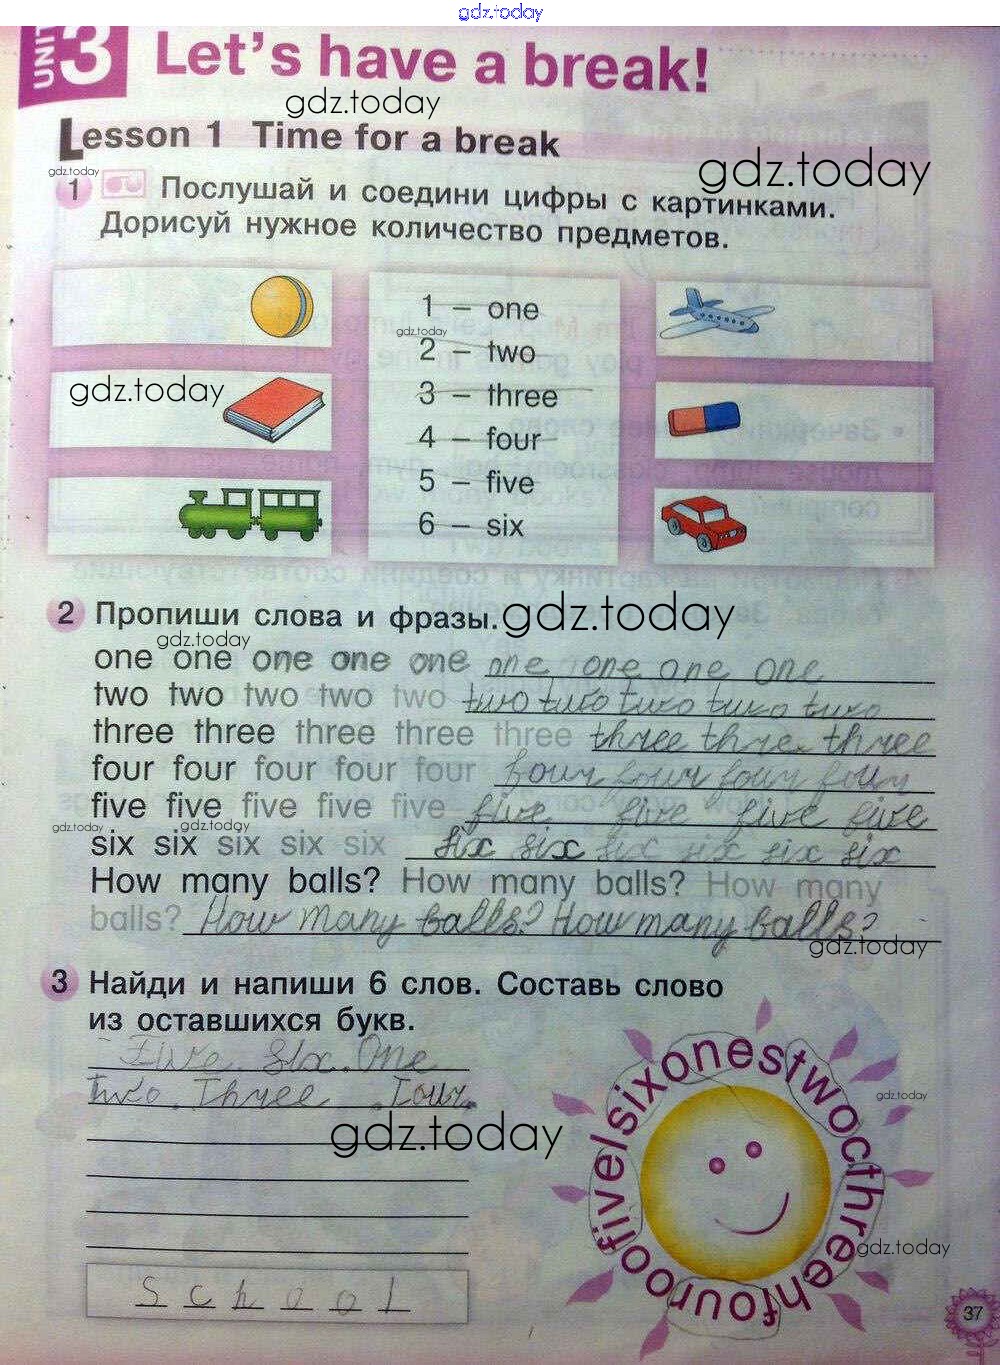 gdz.today
UNIT 3 Let's have a break!
gdz.today
Lesson 1 Time for a break
gdz.today
gdz.today
1 Послушай и соедини цифры с картинками.
Дорисуй нужное количество предметов.
1 – one
gdz.today
2 – two
gdz.today
3 – three
4 – four
5 – five
6 – six
2 Пропиши слова и фразы.
gdz.today
gdz.today
one one one one one one one one one
two two two two two two two two two two
three three three three three three three three
four four four four four four four four four
five five five five five five five five five
gdz.today gdz.today
six six six six six six six six six six six
How many balls? How many balls? How many
balls? How many balls? How many balls?
gdz.today
3 Найди и напиши 6 слов. Составь слово
из оставшихся букв.
Five. Six. One
Two. Three. Four.
gdz.today
gdz.today
fivelsixonestwocthreehfouroo
gdz.today
S c h o o l
37